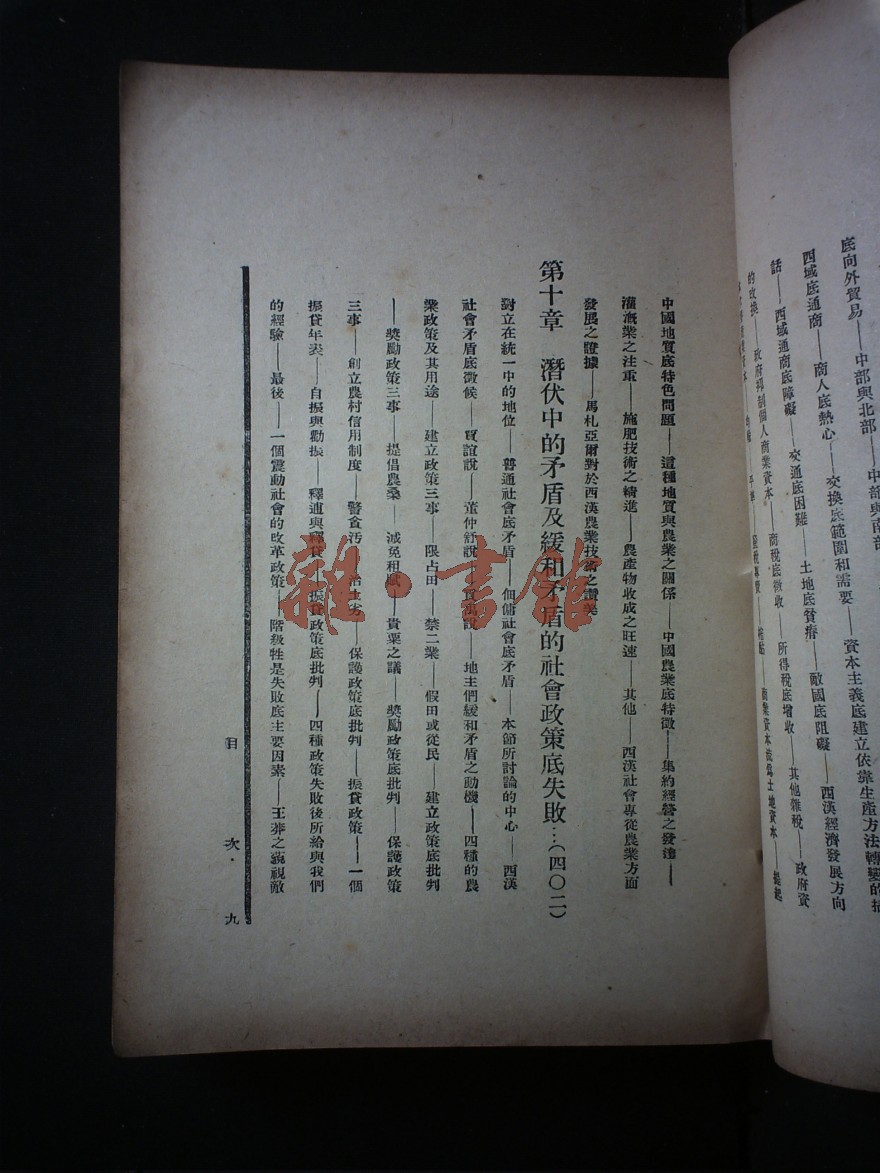 底向外貿易——中部與北部——中部與南部
西域底通商——商人底熱心——交換底範圍和需要——資本主義底建立依靠生產方法轉變的
話——西域通商底障礙——交通底困難——土地底貧瘠——敵國底阻礙——西漢經濟發展方向
的改換——政府抑制個人商業資本——商稅底徵收——所得稅底增收——其他雜稅——政府資
中國地質底特色問題——這種地質與農業之關係——中國農業底特徵——集約經營之發達——
灌溉業之注重——施肥技術之精進——農產物收成之旺速——其他——西漢社會專從農業方面
發展之證據——馬札亞爾對於西漢農業技術之讚美
第十章 潛伏中的矛盾及緩和矛盾的社會政策底失敗…(四〇二)
對立在統一中的地位——普通社會底矛盾——佃傭社會底矛盾——本節所討論的中心——西漢
社會矛盾底徵候——賈誼說——董仲舒說——貢禹說——地主們緩和矛盾之動機——四種的農
業政策及其用途——建立政策三事——限占田——禁二業——假田或從民——建立政策底批判
——獎勵政策三事——提倡農桑——減免租賦——貴粟之議——獎勵政策底批判——保護政策
三事——創立農村信用制度——警貪汚——治土劣——保護政策底批判——振貸政策——一個
振貸年表——自振與勸振——釋逋與釋貸——振貸政策底批判——四種政策失敗後所給與我們
的經驗——最後——一個震動社會的改革政策——階級性是失敗底主要因素——王莽之藐視敵
目 次 九
雜·書館